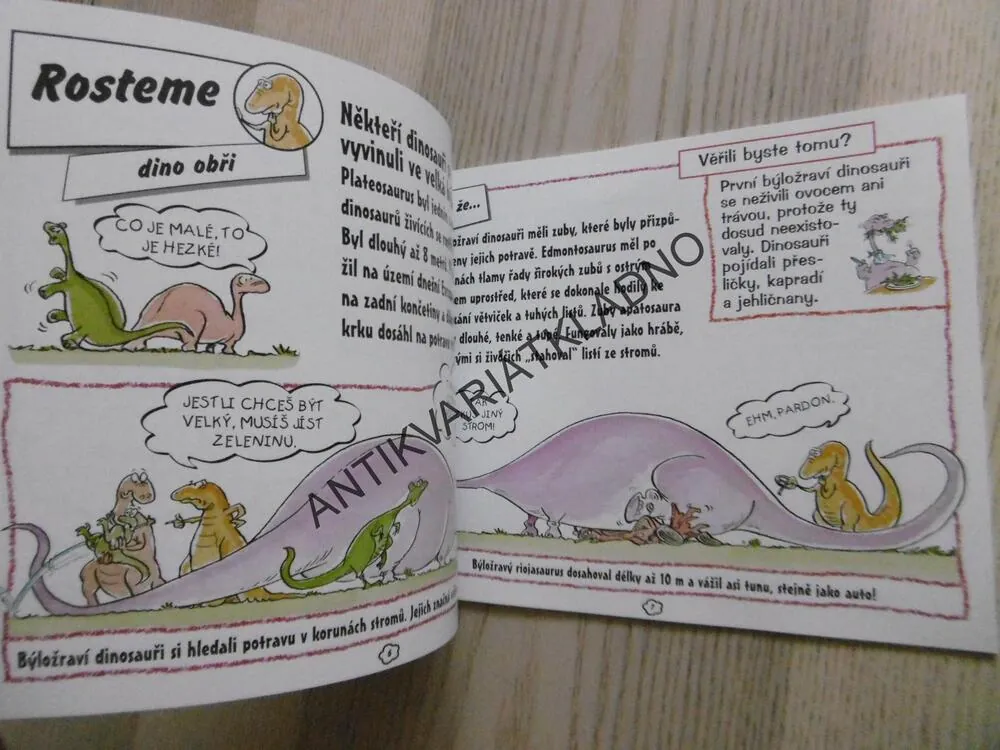 Rosteme
dino obři
Někteří dinosauři
vyvinuli ve velká
Plateosaurus byl jedním
dinosaurů živících se
Byl dlouhý až 8 metrů
žil na území dnešní
na zadní končetiny a
krku dosáhl na potravu
CO JE MALÉ, TO
JE HEZKÉ!
JESTLI CHCEŠ BÝT
VELKÝ, MUSÍŠ JÍST
ZELENINU.
Býložraví dinosauři si hledali potravu v korunách stromů. Jejich značná
6
že...
ožraví dinosauři měli zuby, které byly přizpů-
eny jejich potravě. Edmontosaurus měl po
nách tlamy řady širokých zubů s ostrým
em uprostřed, které se dokonale hodily ke
ání větviček a tuhých listů. Zuby apatosaura
dlouhé, tenké a tupé. Fungovaly jako hrábě,
ými si živočich „stahoval“ listí ze stromů.
Věřili byste tomu?
První býložraví dinosauři
se neživili ovocem ani
trávou, protože ty
dosud neexisto-
valy. Dinosauři
pojídali přes-
ličky, kapradí
a jehličnany.
JINÝ
STROM!
EHM, PARDON.
Býložravý riojasaurus dosahoval délky až 10 m a vážil asi tunu, stejně jako auto!
7
ANTIKVARIATKLADNO